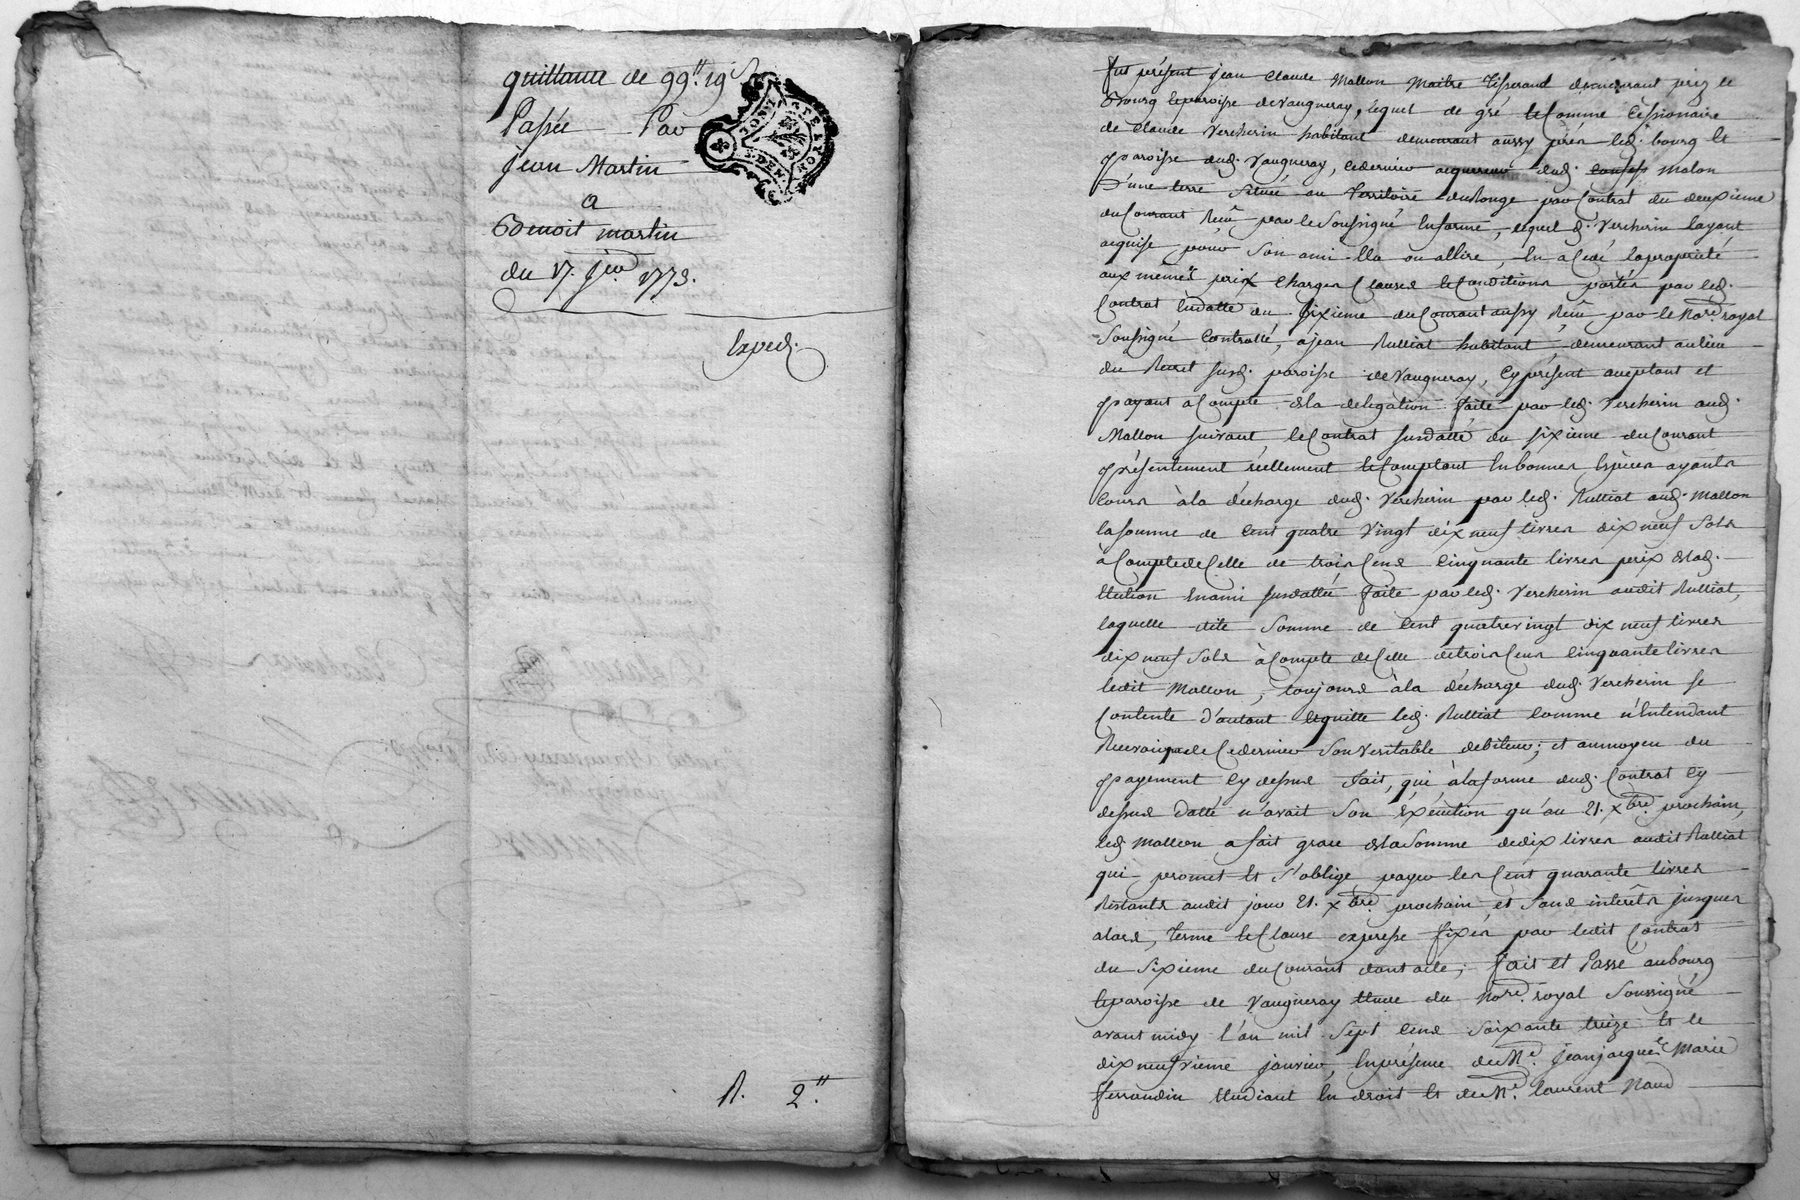 quittance de 99.tt 19s
Passée Par
jean Martin
a
Benoit martin
du 17. jer. 1773.
Exped.
R. 2.tt
fut présent jean Claude Mallon Maitre Tisserand demeurant prez le
Bourg & paroisse de Vaugneray, lequel de gré & Comme Cessionaire
de Claude Vercherin habitant demeurant aussy prés led. bourg &
paroisse dud. Vaugneray, ce dernier acquereur dud. Mallon
D'une terre Située au Territoire du Ronge par Contrat du deuxieme
du Courant Reçû par le Soussigné En forme, lequel d. Vercherin layant
acquise pour Son ami Elû ou a Elire, En a Cédé la propriété
aux mêmes prix Charges Clauses & Conditions portés par led.
Contrat En datte du Sixieme du Courant aussy Reçû par le Nore. royal
Soussigné Controllé, a jean Rulliat habitant, demeurant au lieu
du Recret susd. paroisse de Vaugneray, Cy présent aceptant et
payant a Compte de la delegation faite par led. Vercherin aud.
Mallon suivant le Contrat susdatté du sixieme du Courant
présentement réellement & Comptant En bonnes Espèces ayants
Cours à la décharge dud. Vercherin par led. Rulliat aud. Mallon
la somme de Cent quatre Vingt dix neuf livres dix neuf Sols
à Compte de Celle de trois Cens Cinquante livres prix de lad.
Election En ami susdattée faite par led. Vercherin audit Rulliat,
laquelle dite Somme de Cent quatrevingt dix neuf livres
dix neuf Sols à Compte de Celle de trois Cens Cinquante livres
ledit Mallon, toujours à la décharge dud. Vercherin se
Contente d'autant Et quitte led. Rulliat Comme n'Entendant
Reconnoitre que Ce dernier Son Veritable debiteur; et au moyen du
payement Cy dessus fait, qui à la forme dud. Contrat Cy
dessus datté n'avait Son Exécution qu'au 21. Xbre. prochain,
led. Mallon a fait grace de la Somme de dix livres audit Rulliat
qui promet & S'oblige payer les Cent quarante livres
Restants audit jour 21. Xbre. prochain, et Sans interêts jusques
alors, Terme & Clause expresse fixés par ledit Contrat
du Sixieme du Courant dont acte; fait et Passé au bourg
& paroisse de Vaugneray Etude du Nore. royal Soussigné
avant midy l'an mil Sept Cens Soixante treize & le
dix neufvieme janvier, En présence de Me. jean jacques Marie
ferrandin Etudiant En droit & de Me. laurent Naud